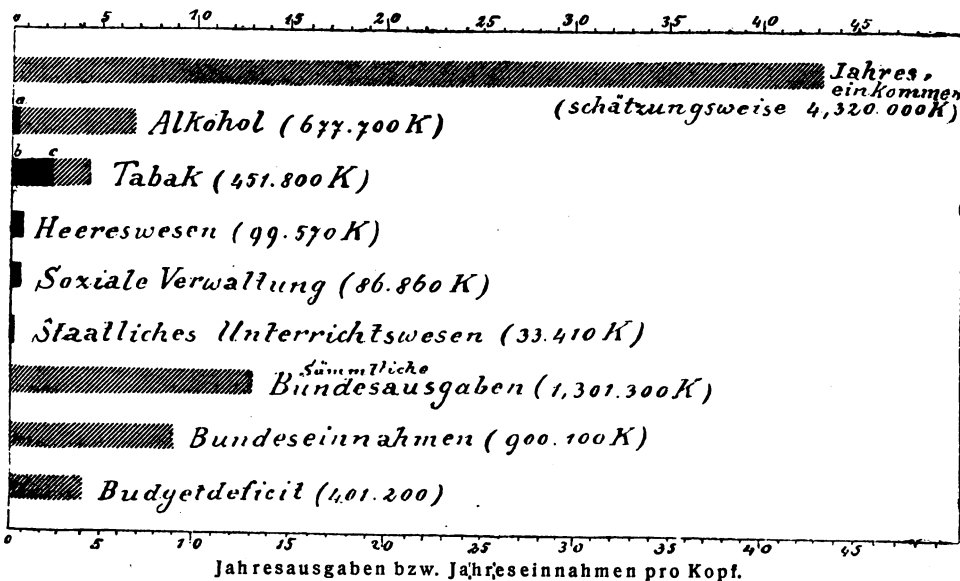 0 5 10 15 20 25 30 35 40 45
Jahres,
einkommen
(schätzungsweise 4,320.000K)
a
Alkohol (677.700K)
b c
Tabak (451.800K)
Heereswesen (99.570K)
Soziale Verwaltung (86.860K)
Staatliches Unterrichtswesen (33.410K)
Sämmtliche
Bundesausgaben (1,301.300K)
Bundeseinnahmen (900.100K)
Budgetdeficit (401.200)
0 5 10 15 20 25 30 35 40 45
Jahresausgaben bzw. Jahreseinnahmen pro Kopf.